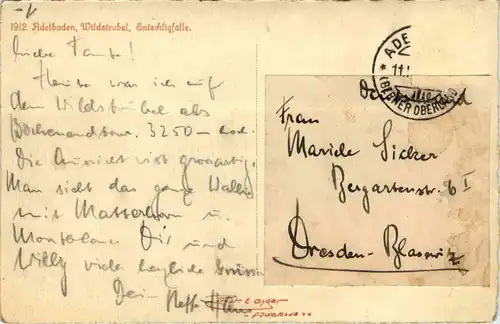 1912 Adelboden, Wildstrubel, Entschligfalle.
Liebe Tante!
Heute war ich auf
dem Wildstrubel als
3250 m hoch.
Die Aussicht ist grossartig.
Man sieht das ganze Wallis
mit Matterhorn u.
Montblanc. Dir und
Willy viele herzliche Grüsse
Dein Neff
ADE
(BERNER OBERLAND)
Frau
Bergartenstr. 6 I
Dresden-Blasewitz